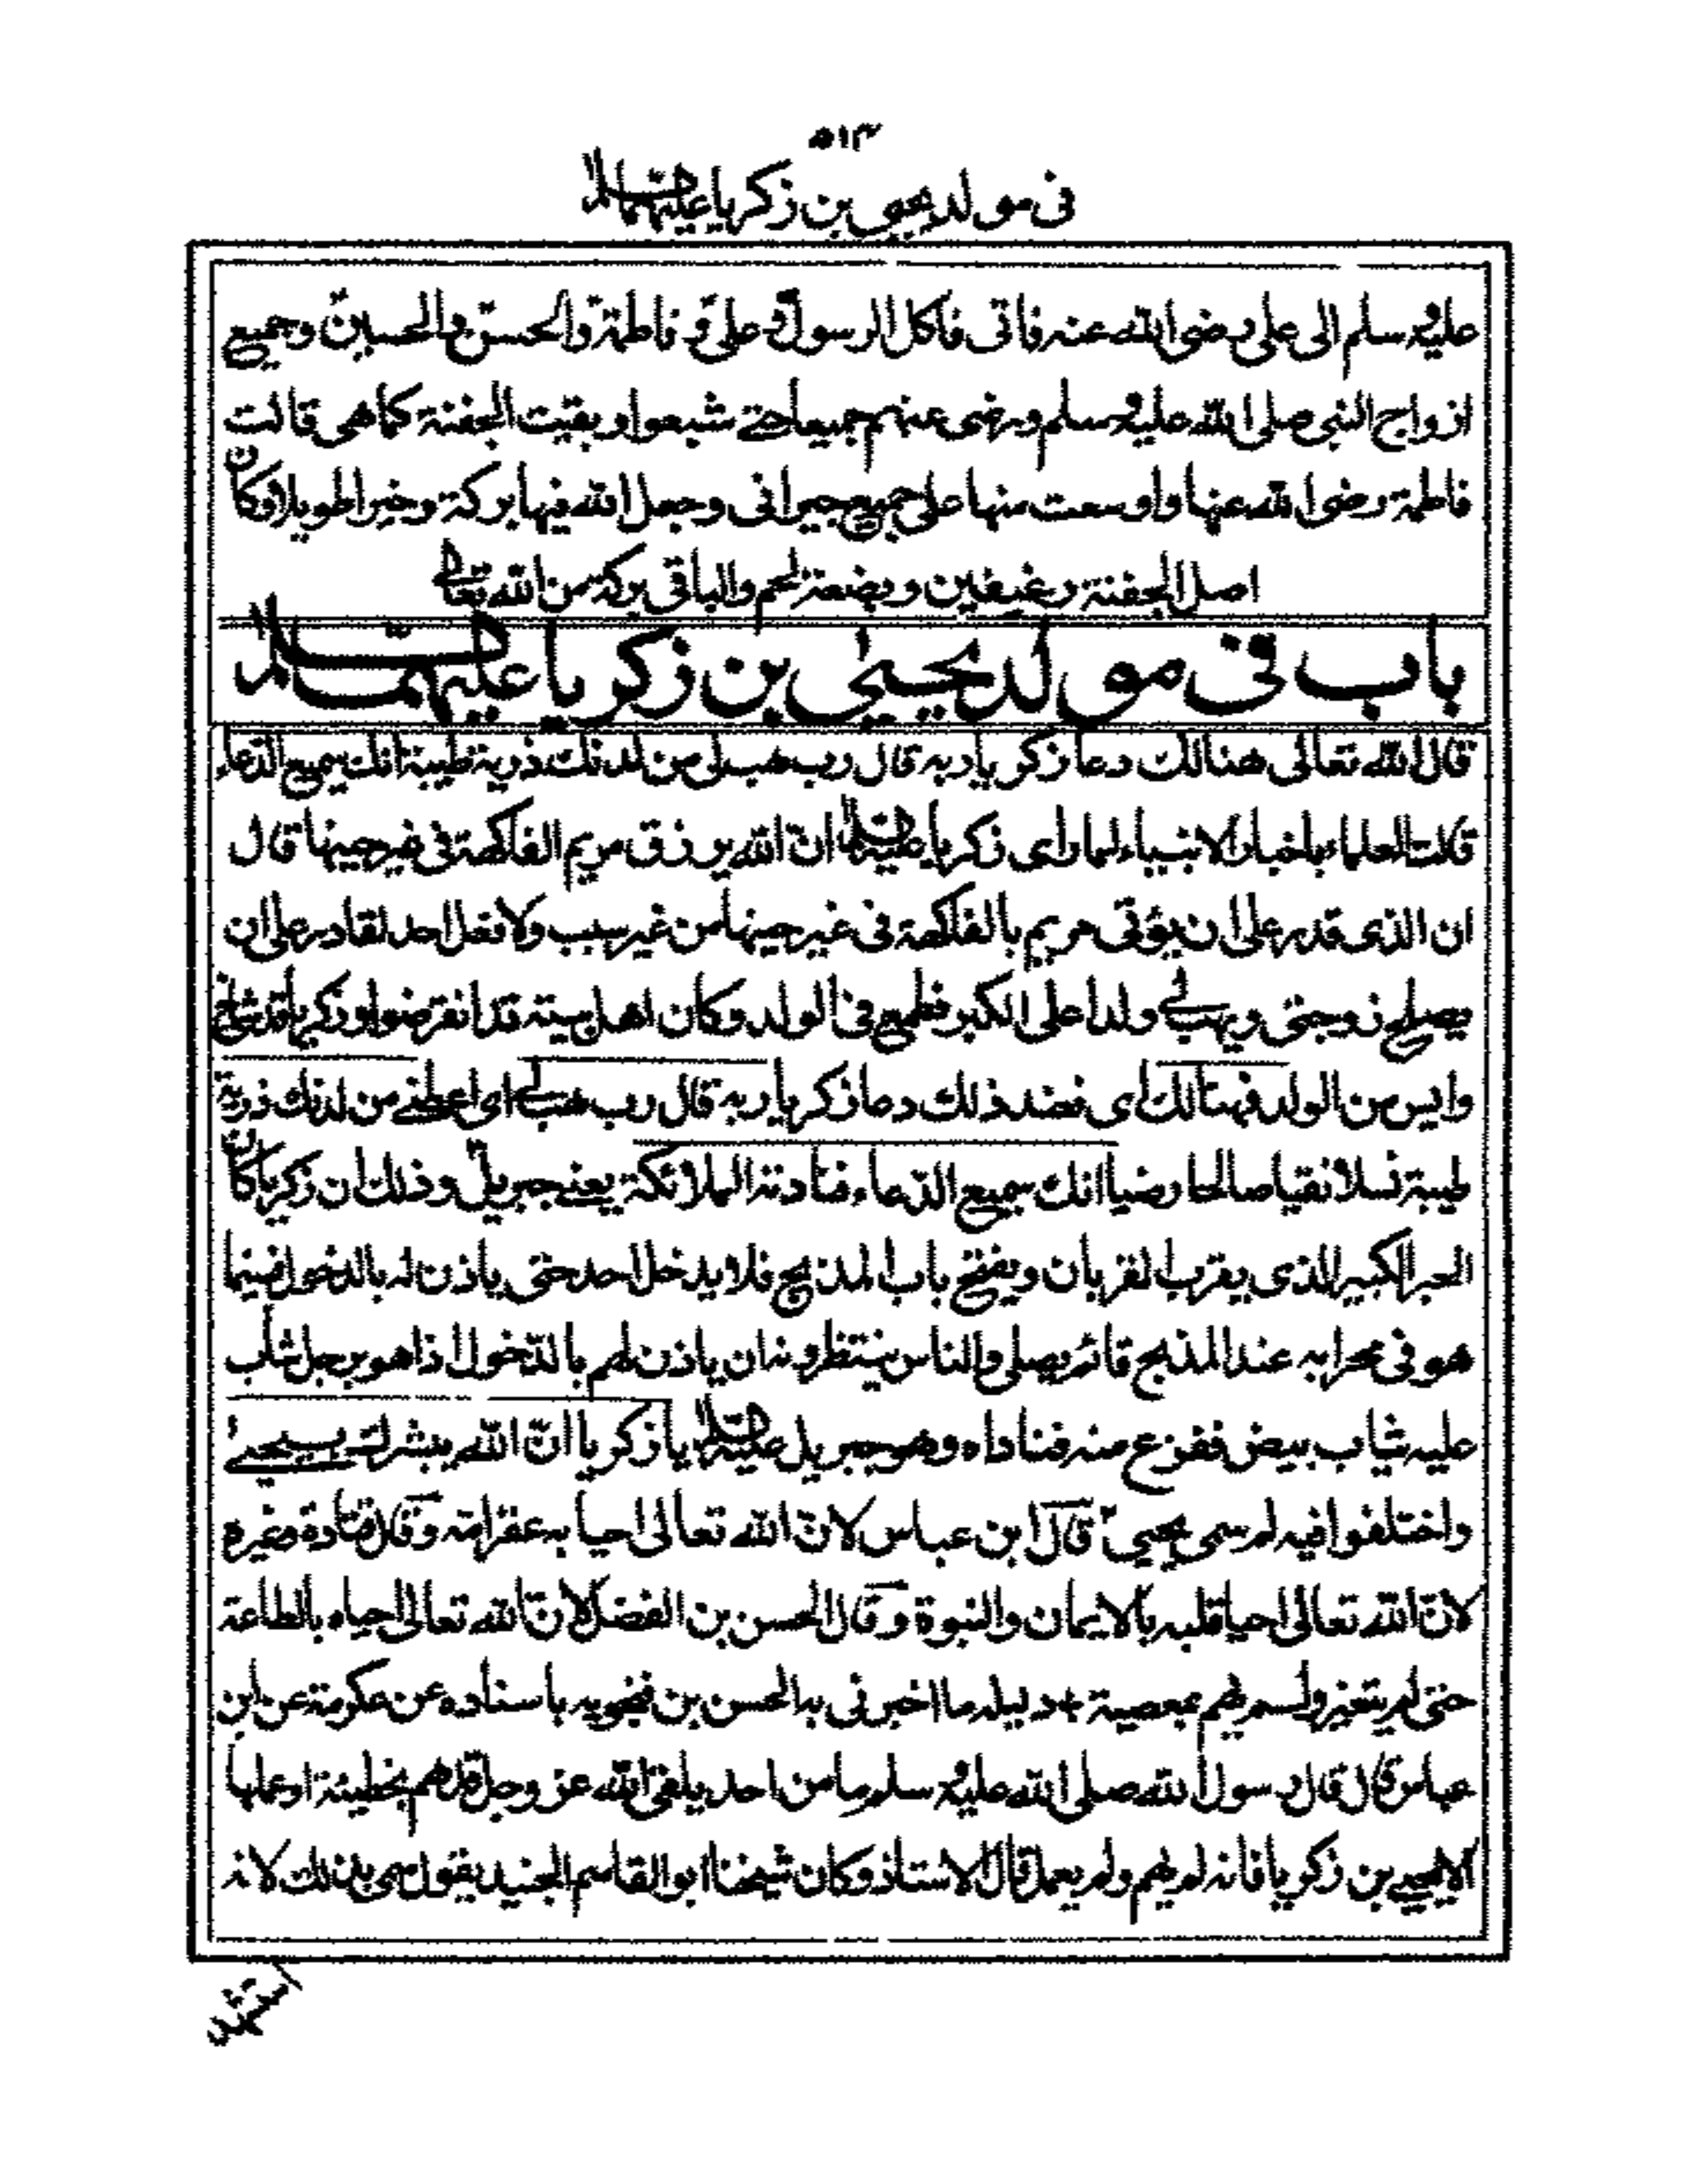 ٥١٣
فى مولد يحيى بن زكريا عليهما السلام
عليه وسلم الى على رضى الله عنه فاتى فاكل الرسول وعلى وفاطمة والحسن والحسين وجميع
ازواج النبى صلى الله عليه وسلم ورضى عنهم جميعا حتى شبعوا وبقيت الجفنة كما هى قالت
فاطمة رضى الله عنها واوسعت منها على جميع جيرانى وجعل الله فيها بركة وخيرا طويلا وكان
اصل الجفنة رغيفين وبضعة لحم والباقى بركة من الله تعالى
باب فى مولد يحيى بن زكريا عليهما السلام
قال الله تعالى هنالك دعا زكريا ربه قال رب هب لى من لدنك ذرية طيبة انك سميع الدعاء
قالت العلماء باخبار الانبياء لما راى زكريا عليه السلام انّ الله يرزق مريم الفاكهة فى غير حينها قال
ان الذى قدر على ان يؤتى مريم بالفاكهة فى غير حينها من غير سبب ولا فعل احد لقادر على ان
يصلح زوجتى ويهب لى ولدا على الكبر فطمع فى الولد وكان اهل بيته قد انقرضوا وزكريا قد شاخ
وايس من الولد فهنالك اى فعند ذلك دعا زكريا ربه قال رب هب لى اى اعطنى من لدنك ذرية
طيبة نسلا نقيا صالحا رضيا انك سميع الدّعاء فنادته الملائكة يعنى جبريل وذلك ان زكريا كان
الحبر الكبير الذى يقرب القربان ويفتح باب المذبح فلا يدخل احد حتى ياذن له بالدخول فبينما
هو فى محرابه عند المذبح قائم يصلى والناس ينتظرونه ان ياذن لهم بالدّخول اذا هو برجل شاب
عليه ثياب بيض ففزع منه فناداه وهو جبريل عليه السلام يا زكريا انّ الله يبشرك بيحيى
واختلفوا فيه لم سمى يحيى قال ابن عباس لانّ الله تعالى احيا به عقر امه وقال قتادة وغيره
لانّ الله تعالى احيا قلبه بالايمان والنبوة وقال الحسن بن الفضل لانّ الله تعالى احياه بالطاعة
حتى لم يتغير ولم يهم بمعصية دليله ما اخبرنى به الحسن بن فنجويه باسناده عن عكرمة عن ابن
عباس قال قال رسول الله صلى الله عليه وسلم ما من احد يلقى الله عز وجل قد هم بخطيئة او عملها
الا يحيى بن زكريا فانه لم يهم ولم يعمل قال الاستاذ وكان شيخنا ابو القاسم الجنيد يقول سمى بذلك لانه
استشهد